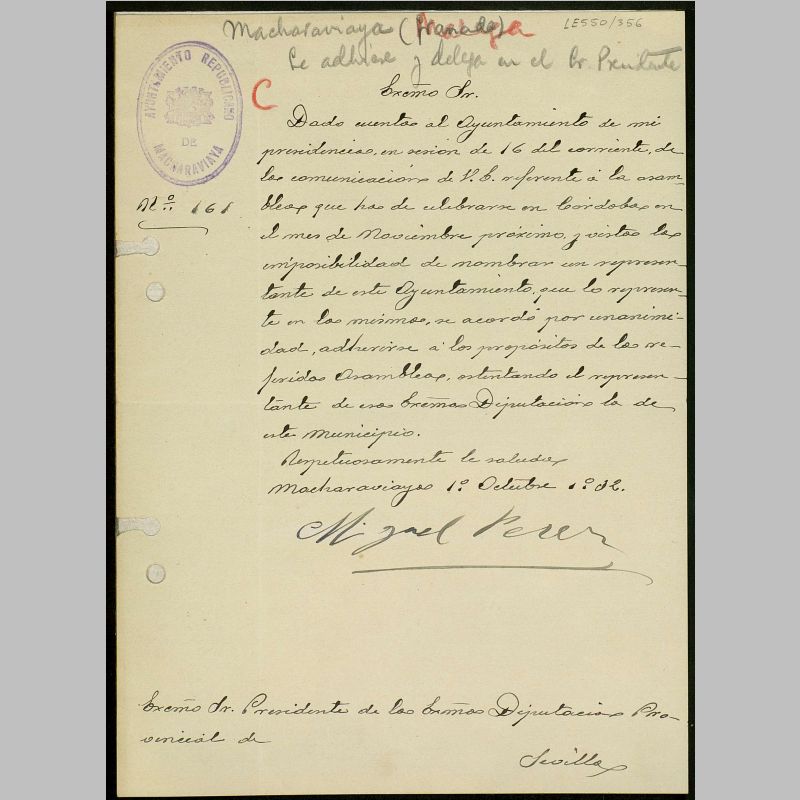 Macharaviaya (Granada)
LE550/356
Se adhiere y delega en el Sr. Presidente
AYUNTAMIENTO REPUBLICANO
DE
MACHARAVIAYA
C
Excmo Sr.
Nº 161
Dada cuenta al Ayuntamiento de mi
presidencia, en sesión de 16 del corriente, de
la comunicación de V. E. referente á la asam-
blea que ha de celebrarse en Córdoba en
el mes de Noviembre próximo, y vista la
imposibilidad de nombrar un represen-
tante de este Ayuntamiento, que lo represen-
te en la misma, se acordó por unanimi-
dad, adherirse á los propósitos de la re-
ferida Asamblea, ostentando el represen-
tante de esa Excma Diputación la de
este Municipio.
Respetuosamente le saluda
Macharaviaya 1º Octubre 1º32.
Miguel Perez
Excmo Sr. Presidente de la Excma Diputacion Pro-
vincial de
Sevilla